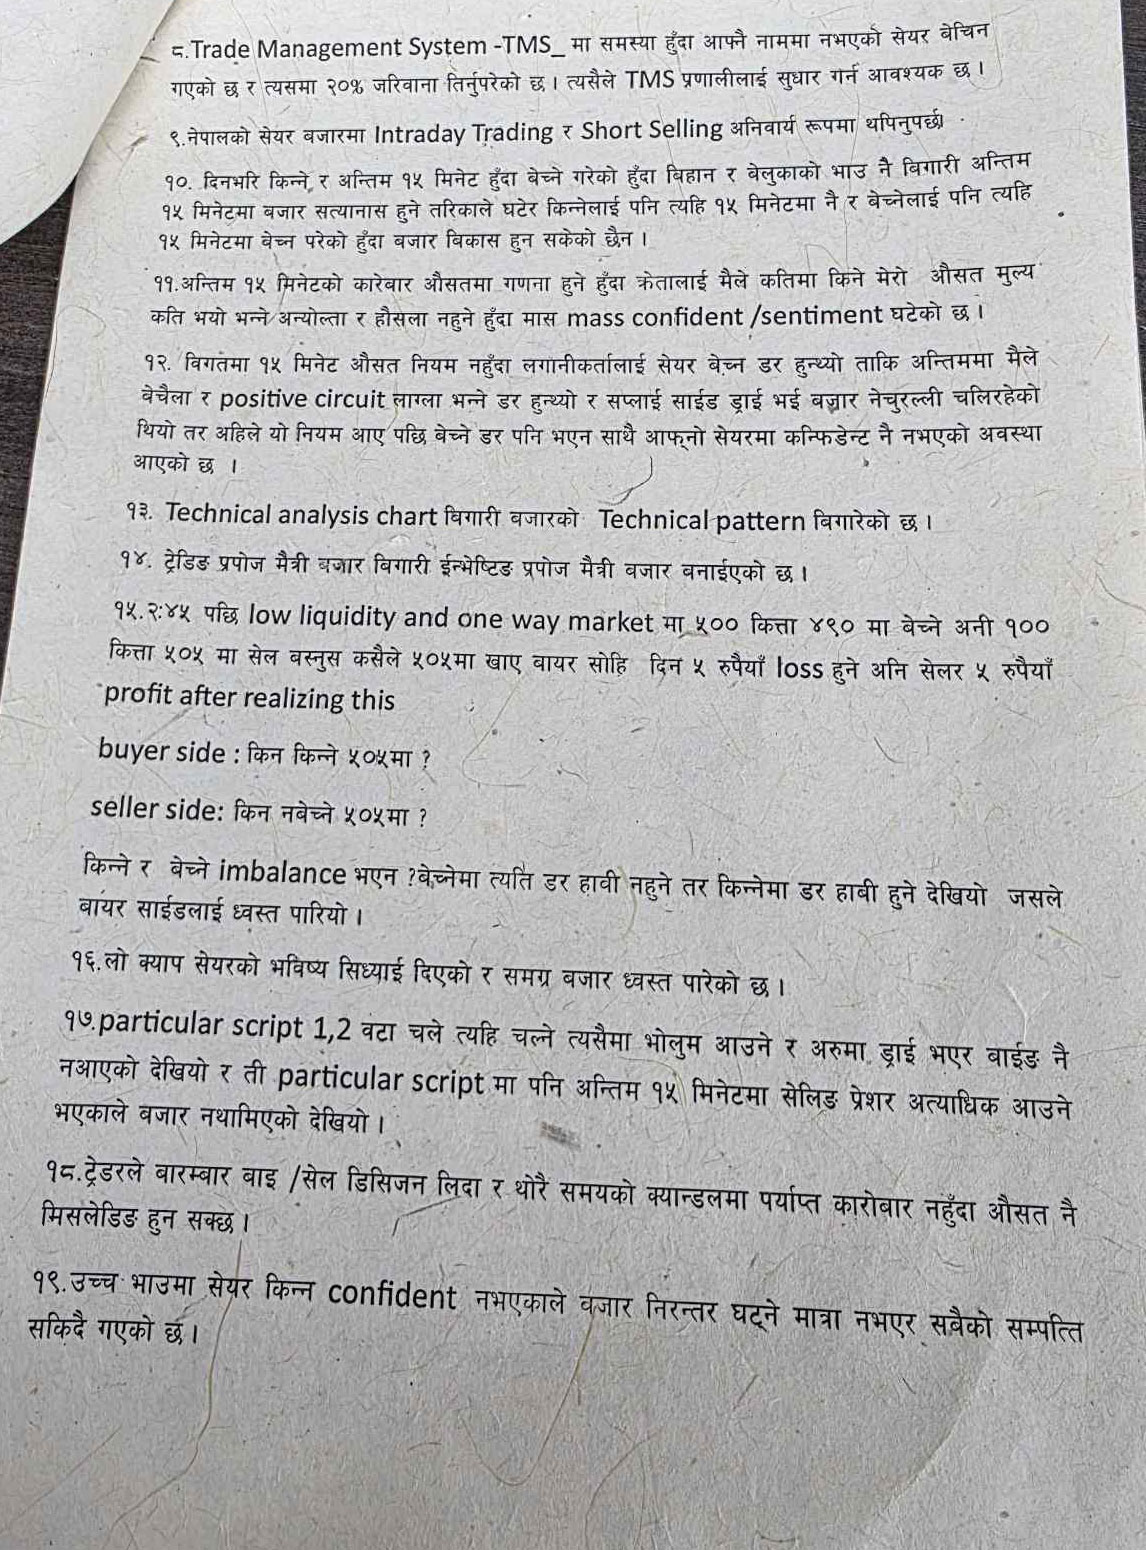 ८.Trade Management System -TMS_ मा समस्या हुँदा आफ्नै नाममा नभएको सेयर बेचिन
गएको छ र त्यसमा २०% जरिवाना तिर्नुपरेको छ । त्यसैले TMS प्रणालीलाई सुधार गर्न आवश्यक छ ।
९.नेपालको सेयर बजारमा Intraday Trading र Short Selling अनिवार्य रूपमा थपिनुपर्छ।
१०. दिनभरि किन्ने र अन्तिम १५ मिनेट हुँदा बेच्ने गरेको हुँदा बिहान र बेलुकाको भाउ नै बिगारी अन्तिम
१५ मिनेटमा बजार सत्यानास हुने तरिकाले घटेर किन्नेलाई पनि त्यहि १५ मिनेटमा नै र बेच्नेलाई पनि त्यहि
१५ मिनेटमा बेच्न परेको हुँदा बजार बिकास हुन सकेको छैन ।
११.अन्तिम १५ मिनेटको कारेबार औसतमा गणना हुने हुँदा क्रेतालाई मैले कतिमा किने मेरो औसत मुल्य
कति भयो भन्ने अन्योल्ता र हौसला नहुने हुँदा मास mass confident /sentiment घटेको छ ।
१२. विगतमा १५ मिनेट औसत नियम नहुँदा लगानीकर्तालाई सेयर बेच्न डर हुन्थ्यो ताकि अन्तिममा मैले
बेचैला र positive circuit लाग्ला भन्ने डर हुन्थ्यो र सप्लाई साईड ड्राई भई बजार नेचुरल्ली चलिरहेको
थियो तर अहिले यो नियम आए पछि बेच्ने डर पनि भएन साथै आफ्नो सेयरमा कन्फिडेन्ट नै नभएको अवस्था
आएको छ ।
१३. Technical analysis chart बिगारी बजारको Technical pattern बिगारेको छ ।
१४. ट्रेडिङ प्रपोज मैत्री बजार बिगारी ईन्भेष्टिङ प्रपोज मैत्री वजार बनाईएको छ ।
१५.२:४५ पछि low liquidity and one way market मा ५०० कित्ता ४९० मा बेच्ने अनी १००
कित्ता ५०५ मा सेल बस्नुस कसैले ५०५मा खाए बायर सोहि दिन ५ रुपैयाँ loss हुने अनि सेलर ५ रुपैयाँ
profit after realizing this
buyer side : किन किन्ने ५०५मा ?
seller side: किन नबेच्ने ५०५मा ?
किन्ने र बेच्ने imbalance भएन ?बेच्नेमा त्यति डर हावी नहुने तर किन्नेमा डर हाबी हुने देखियो जसले
बायर साईडलाई ध्वस्त पारियो ।
१६.लो क्याप सेयरको भविष्य सिध्याई दिएको र समग्र बजार ध्वस्त पारेको छ ।
१७.particular script 1,2 वटा चले त्यहि चल्ने त्यसैमा भोलुम आउने र अरुमा ड्राई भएर बाईङ नै
नआएको देखियो र ती particular script मा पनि अन्तिम १५ मिनेटमा सेलिङ प्रेशर अत्याधिक आउने
भएकाले बजार नथामिएको देखियो ।
१८.ट्रेडरले बारम्बार बाइ /सेल डिसिजन लिदा र थोरै समयको क्यान्डलमा पर्याप्त कारोबार नहुँदा औसत नै
मिसलेडिङ हुन सक्छ ।
१९.उच्च भाउमा सेयर किन्न confident नभएकाले वजार निरन्तर घट्ने मात्रा नभएर सबैको सम्पत्ति
सकिदै गएको छ ।